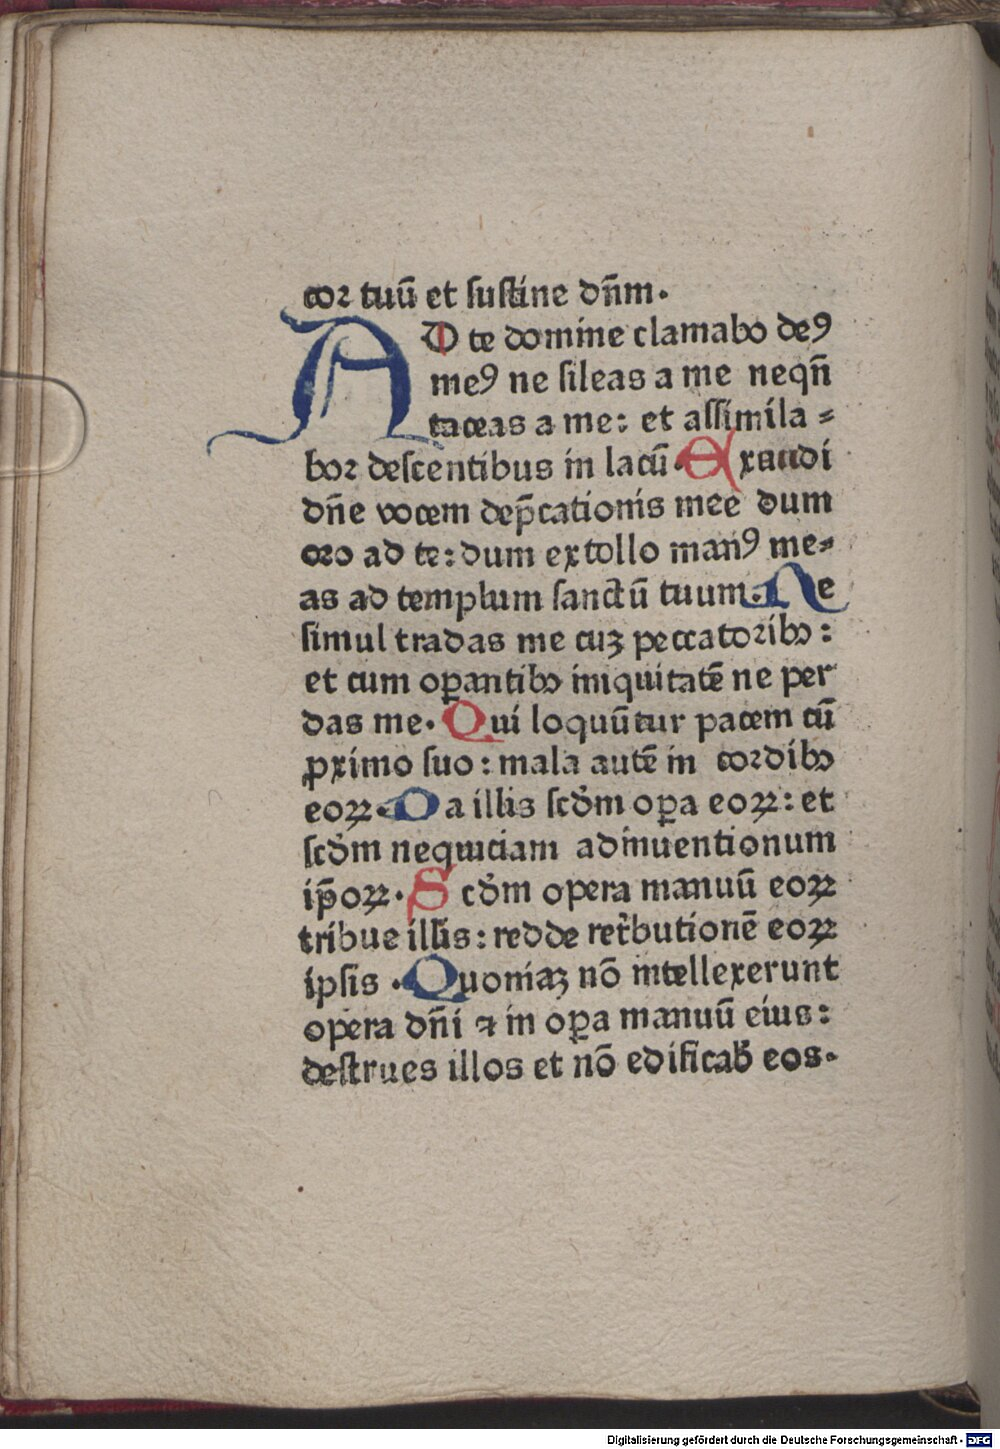 cor tuū et sustine dn̄m.
AD te domine clamabo deꝰ
meꝰ ne sileas a me neqn̄
taceas a me: et assimila=
bor descentibus in lacū. Exaudi
dn̄e vocem dep̄cationis mee dum
oro ad te: dum extollo manꝰ me=
as ad templum sanctū tuum. Ne
simul tradas me cuʒ peccatoribꝫ:
et cum oꝑantibꝫ iniquitatē ne per
das me. Qui loquūtur pacem cū
ꝓximo suo: mala autē in cordibꝫ
eoꝝ. Da illis scd̓m oꝑa eoꝝ: et
scd̓m nequiciam adinuentionum
ip̄oꝝ. Scd̓m opera manuū eoꝝ
tribue illis: redde ret̓butionē eoꝝ
ipsis. Quoniaʒ nō intellexerunt
opera dn̄i ⁊ in oꝑa manuū eius:
destrues illos et nō edificab̓ eos.
Digitalisierung gefördert durch die Deutsche Forschungsgemeinschaft - DFG